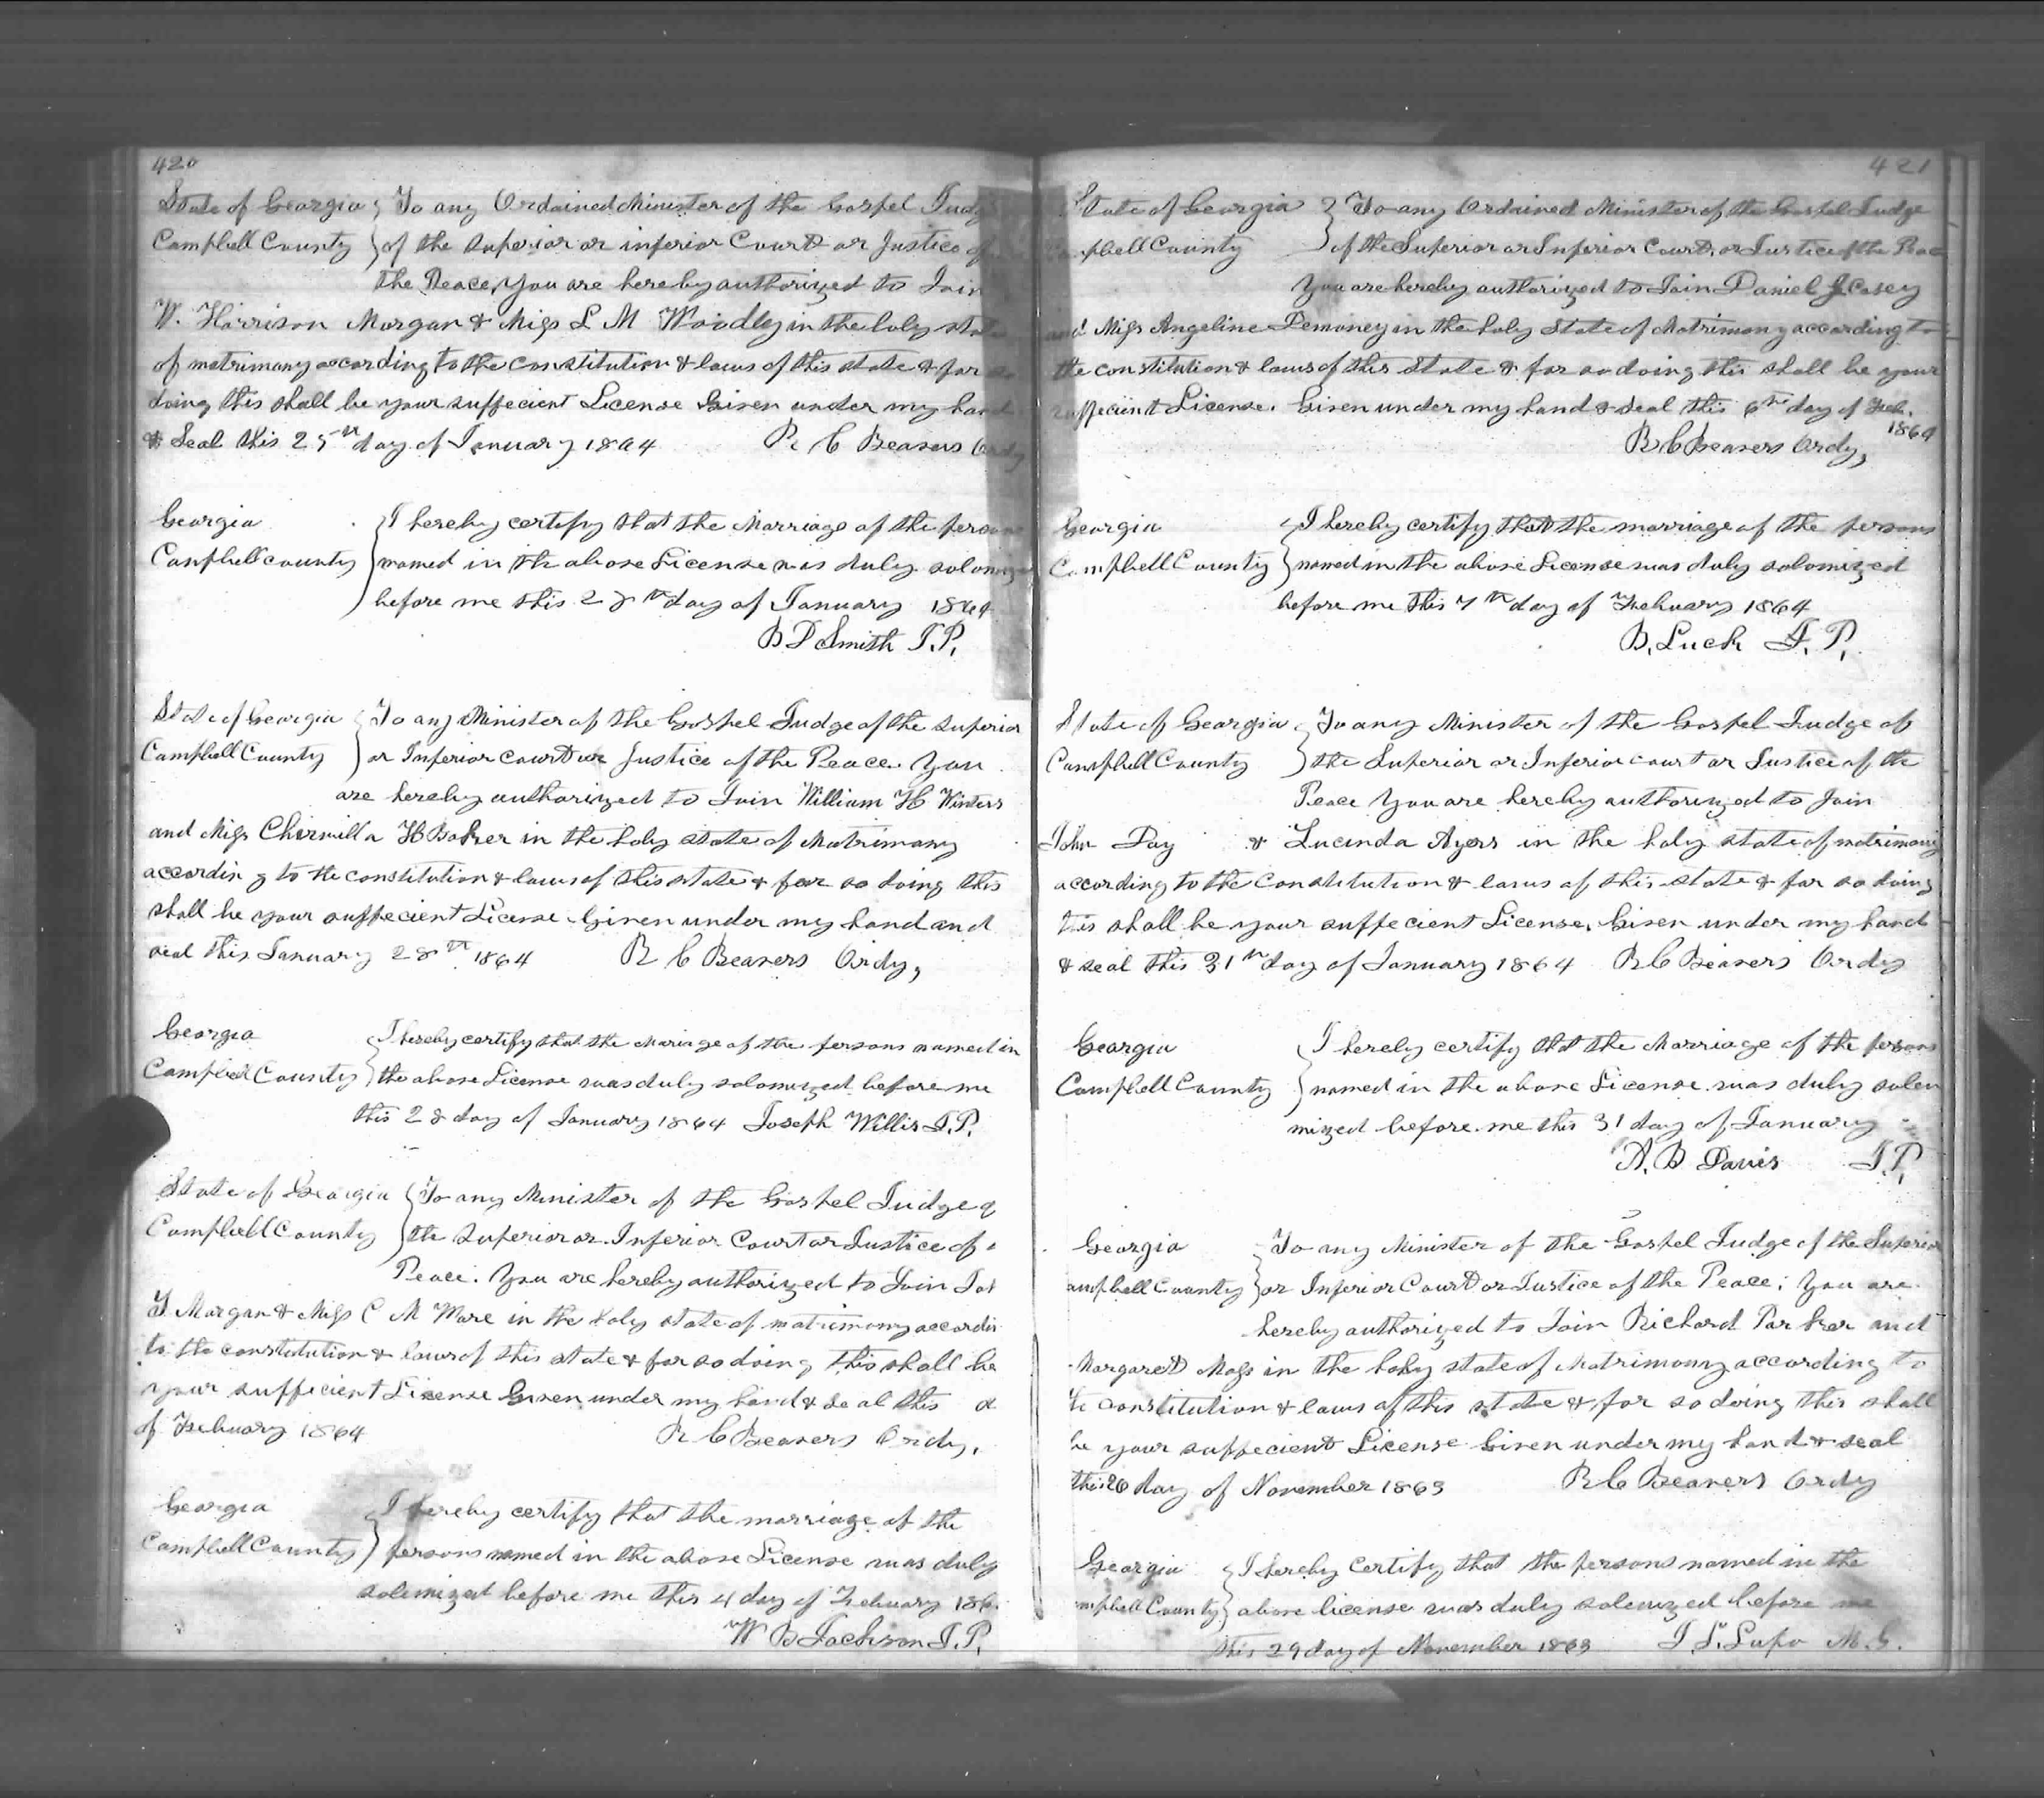 420
State of Georgia } To any Ordained Minister of the Gospel Judg
Campbell County } of the Superior or inferior Court or Justice of
the Peace, You are hereby authorized to Join
W. Harrison Morgan & Miss L M Woodley in the holy state
of matrimony according to the constitution & laws of this state & for so
doing this shall be your suffecient License Given under my hand
& Seal this 25th day of January 1864 R. C Beavers Ordy
Georgia } I hereby certify that the Marriage of the persons
Canpbell county } named in the above License was duly solomnized
before me this 28th day of January 1864
B D Smith J.P.
State of Georgia } To any Minister of the Gospel Judge of the Superior
Campbell County } or Inferior court or Justice of the Peace. You
are hereby authorized to Join William H Winters
and Miss H Baker in the holy state of Matrimony
according to the constitution & laws of this state & for so doing this
shall be your suffecient License Given under my hand and
seal this January 28th 1864 R C Beavers Ordy,
Georgia } I hereby certify that the Mariage of the persons named in
Campbell County } the above License was duly solomized before me
this 28 day of January 1864 Joseph Willis J.P.
State of Georgia } To any Minister of the Gospel Judge of
Campbell County } the Superior or Inferior Court or Justice of
Peace. You are hereby authorized to Join
Morgan & Miss C M More in the holy state of matrimony accordin
to the constitution & laws of this state & for so doing this shall be
your suffecient License Given under my hand & seal this
of Febuary 1864 R C Beavers Ordy,
Georgia } I hereby certify that the marriage of the
Campbell County } persons named in the above License was duly
solemized before me this 4 day of Febuary 186
W B Jackson J.P.
421
State of Georgia } To any Ordained Minister of the Gospel Judge
mpbell County } of the Superior or Inferior Court or Justice of the Peac
You are hereby authorized to Join Daniel J Casey
and Miss Angeline Demoney in the holy State of Matrimony according to
the constitution & laws of this State & for so doing this shall be your
suffecient License. Given under my hand & Seal this 6th day of Feb.
1864
R C Beavers Ordy,
Georgia } I hereby certify that the marriage of the persons
Campbell County } named in the above License was duly solomized
before me this 7th day of Febuary 1864
B. Luck J. P.
State of Georgia } To any Minister of the Gospel Judge of
Campbell County } the Superior or Inferior court or Justice of the
Peace You are hereby authorized to Join
John Day & Lucinda Ayers in the holy state of matrimony
according to the Constitution & laws of this state & for so doing
this shall be your suffecient License. Given under my hand
& seal this 31st day of January 1864 R C Beavers Ordy
Georgia } I hereby certify that the Marriage of the persons
Campbell County } named in the above License was duly solem
mized before me this 31 day of January
A. B Davis J.P.
Georgia } To any Minister of the Gospel Judge of the Superior
ampbell County } or Inferior Court or Justice of the Peace; You are
hereby authorized to Join Richard Parker and
Margaret Moss in the holy state of Matrimony according to
the constitution & laws of this state & for so doing this shall
be your suffecient License Given under my hand & seal
this 26 day of November 1863 R C Beavers Ordy
Georgia } I hereby certify that the persons named in the
mpbell County } above license was duly solemized before me
this 29 day of November 1863 J. S. Lupo M. G.